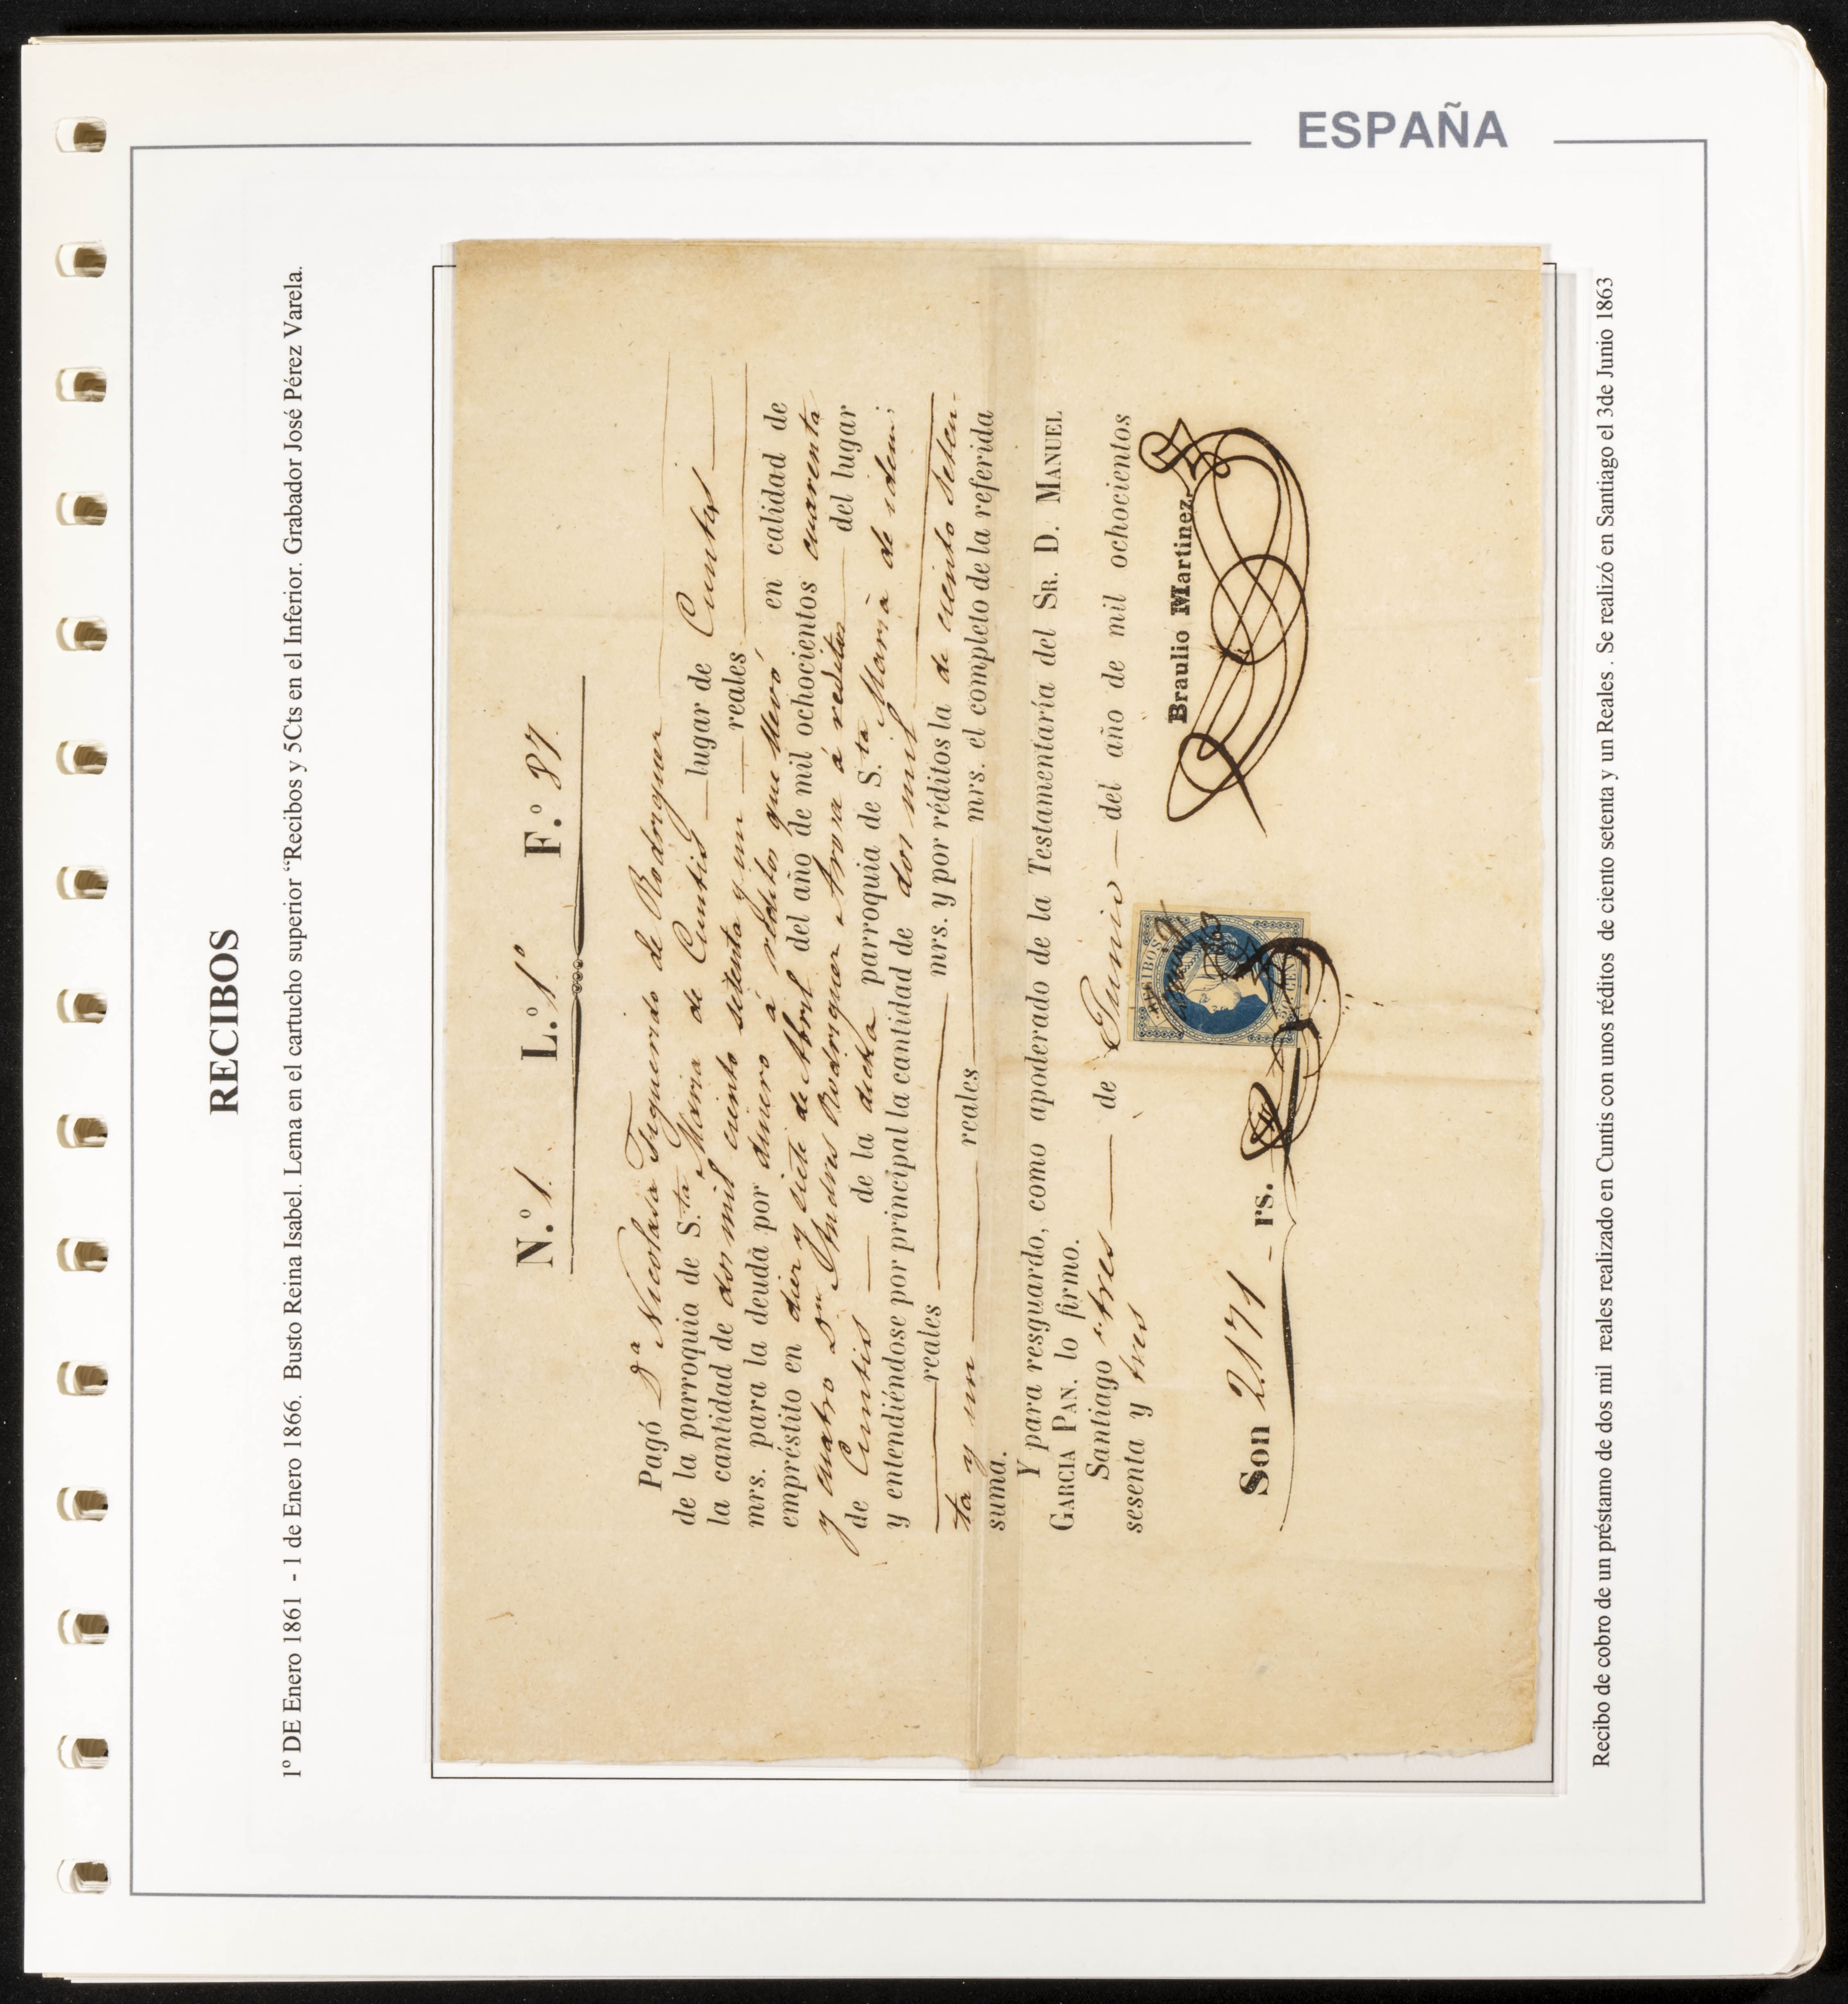 ESPAÑA
RECIBOS
1º DE Enero 1861 - 1 de Enero 1866. Busto Reina Isabel. Lema en el cartucho superior “Recibos y 5Cts en el Inferior. Grabador José Pérez Varela.
N.º 1. L.º 1º F.º 87
Pagó Dª Nicolasa Figueredo de Rodriguez
de la parroquia de S.ta Maria de Cuntis lugar de Cuntis
la cantidad de dos mil ciento setenta y un reales
mrs. para la deuda por dinero á réditos que llevó en calidad de
empréstito en diez y siete de Abril del año de mil ochocientos cuarenta
y cuatro Dn Andres Rodriguez á reditos
de Cuntis de la dicha parroquia de S.ta Maria de idem; del lugar
y entendiéndose por principal la cantidad de dos mil
reales mrs. y por réditos la de ciento seten-
ta y un reales mrs. el completo de la referida
suma.
Y para resguardo, como apoderado de la Testamentaría del SR. D. MANUEL
GARCIA PAN. lo firmo.
Santiago tres de Junio del año de mil ochocientos
sesenta y tres
Braulio Martinez
RECIBOS
50 CENT
Son 2.171 rs.
Recibo de cobro de un préstamo de dos mil reales realizado en Cuntis con unos réditos de ciento setenta y un Reales . Se realizó en Santiago el 3de Junio 1863